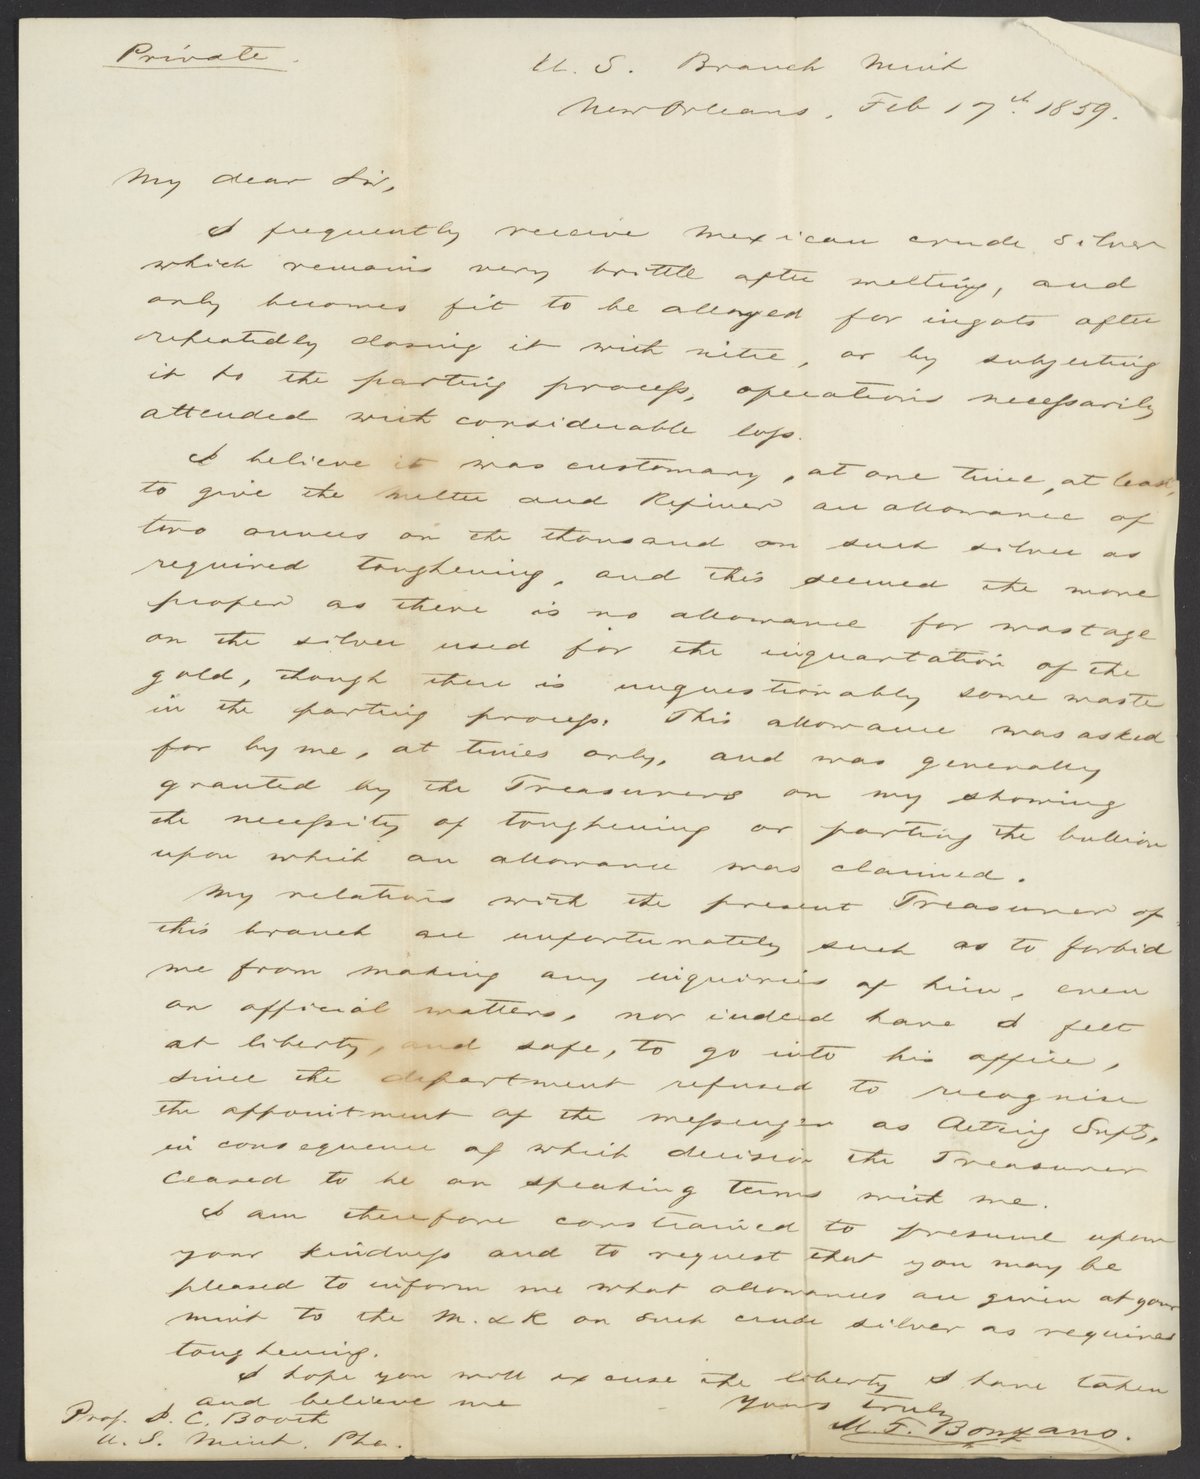 Private.
U. S. Branch Mint
New Orleans, Feb 17th. 1859.
My dear Sir,
I frequently receive Mexican crude silver
which remains very brittle after melting, and
only becomes fit to be alloyed for ingots after
repeatedly dosing it with nitre, or by subjecting
it to the parting process, operations necessarily
attended with considerable loss.
I believe it was customary, at one time, at least,
to give the Melter and Refiner an allowance of
two ounces on the thousand on such silver as
required toughening, and this seemed the more
proper as there is no allowance for wastage
on the silver used for the inquartation of the
gold, though there is unquestionably some waste
in the parting process. This allowance was asked
for by me, at times only, and was generally
granted by the Treasurers on my showing
the necessity of toughening or parting the bullion
upon which an allowance was claimed.
My relations with the present Treasurer of
this branch are unfortunately such as to forbid
me from making any inquiries of him, even
on official matters, nor indeed have I felt
at liberty, and safe, to go into his office,
since the department refused to recognise
the appointment of the messenger as Acting Supt.,
in consequence of which decision the Treasurer
ceased to be on speaking terms with me.
I am therefore constrained to presume upon
your kindness and to request that you may be
pleased to inform me what allowances are given at your
mint to the M. & R on such crude silver as requires
toughening.
I hope you will excuse the liberty I have taken
and believe me
Yours truly
M. F. Bonzano.
Prof. J. C. Booth
U. S. Mint. Pha.